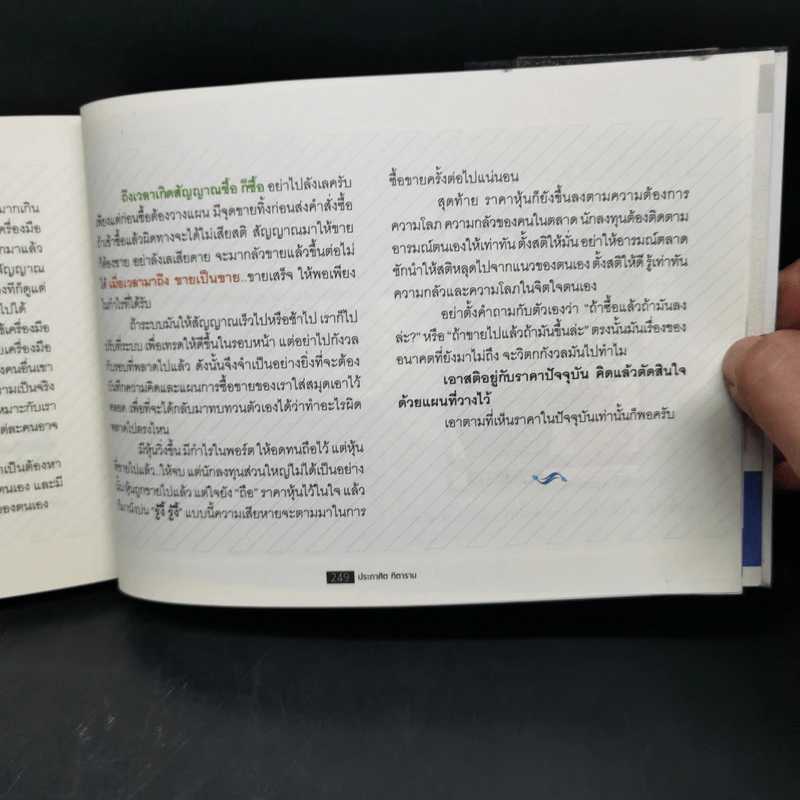 มากเกิน
ครื่องมือ
กมาแล้ว
สัญญาณ
งทีก็ดูแต่
ไปได้
ช้เครื่องมือ
บเครื่องมือ
งคนอื่นเขา
ามเป็นจริง
หมาะกับเรา
ต่ละคนอาจ
าเป็นต้องหา
ตนเอง และมี
องตนเอง
ถึงเวลาเกิดสัญญาณซื้อ ก็ซื้อ อย่าไปลังเลครับ
เพียงแต่ก่อนซื้อต้องวางแผน มีจุดขายทิ้งก่อนส่งคำสั่งซื้อ
ถ้าเข้าซื้อแล้วผิดทางจะได้ไม่เสียสติ สัญญาณมาให้ขาย
ก็ต้องขาย อย่าลังเลเสียดาย จะมากลัวขายแล้วขึ้นต่อไม่
ได้ เมื่อเวลามาถึง ขายเป็นขาย..ขายเสร็จ ให้พอเพียง
ในกำไรที่ได้รับ
ถ้าระบบมันให้สัญญาณเร็วไปหรือช้าไป เราก็ไป
ปรับที่ระบบ เพื่อเทรดให้ดีขึ้นในรอบหน้า แต่อย่าไปกังวล
กับรอบที่พลาดไปแล้ว ดังนั้นจึงจำเป็นอย่างยิ่งที่จะต้อง
บันทึกความคิดและแผนการซื้อขายของเราใส่สมุดเอาไว้
ตลอด เพื่อที่จะได้กลับมาทบทวนตัวเองได้ว่าทำอะไรผิด
พลาดไปตรงไหน
มีหุ้นวิ่งขึ้น มีกำไรในพอร์ต ให้อดทนถือไว้ แต่หุ้น
ที่ขายไปแล้ว..ให้จบ แต่นักลงทุนส่วนใหญ่ไม่ได้เป็นอย่าง
นั้น หุ้นถูกขายไปแล้ว แต่ใจยัง “ถือ” ราคาหุ้นไว้ในใจ แล้ว
ก็มานั่งบ่น “รู้งี้ รู้งี้” แบบนี้ความเสียหายจะตามมาในการ
ซื้อขายครั้งต่อไปแน่นอน
สุดท้าย ราคาหุ้นก็ยังขึ้นลงตามความต้องการ
ความโลภ ความกลัวของคนในตลาด นักลงทุนต้องติดตาม
อารมณ์ตนเองให้เท่าทัน ตั้งสติให้มั่น อย่าให้อารมณ์ตลาด
ชักนำให้สติหลุดไปจากแนวของตนเอง ตั้งสติให้ดี รู้เท่าทัน
ความกลัวและความโลภในจิตใจตนเอง
อย่าตั้งคำถามกับตัวเองว่า “ถ้าซื้อแล้วถ้ามันลง
ล่ะ?” หรือ “ถ้าขายไปแล้วถ้ามันขึ้นล่ะ” ตรงนั้นมันเรื่องของ
อนาคตที่ยังมาไม่ถึง จะวิตกกังวลมันไปทำไม
เอาสติอยู่กับราคาปัจจุบัน คิดแล้วตัดสินใจ
ด้วยแผนที่วางไว้
เอาตามที่เห็นราคาในปัจจุบันเท่านั้นก็พอครับ
249 ประกาศิต ทิตาราม